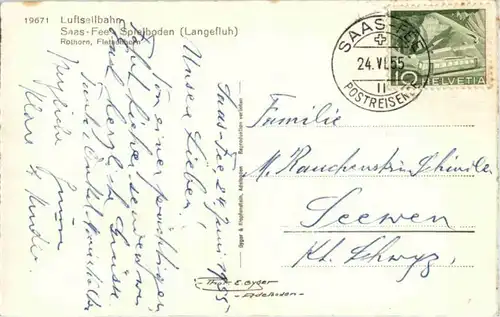 19671 Luftseilbahn
Saas-Fee - Spielboden (Langefluh)
Rothorn, Fletschhorn
SAAS-FEE
24.VI.55
11
POSTREISEN
10 HELVETIA
Familie
M. Rauchenstein-Schindler
Seewen
Kt. Schwyz,
Saas-Fee 24 Juni 1955.
Unsere Lieben!
Von einer prächtigen
Fahrt hieher senden
Euch herzliche Grüsse
Klara & Kinder.
Gyger & Klopfenstein, Adelboden - Reproduction verboten
Phot. E. Gyger
- Adelboden -